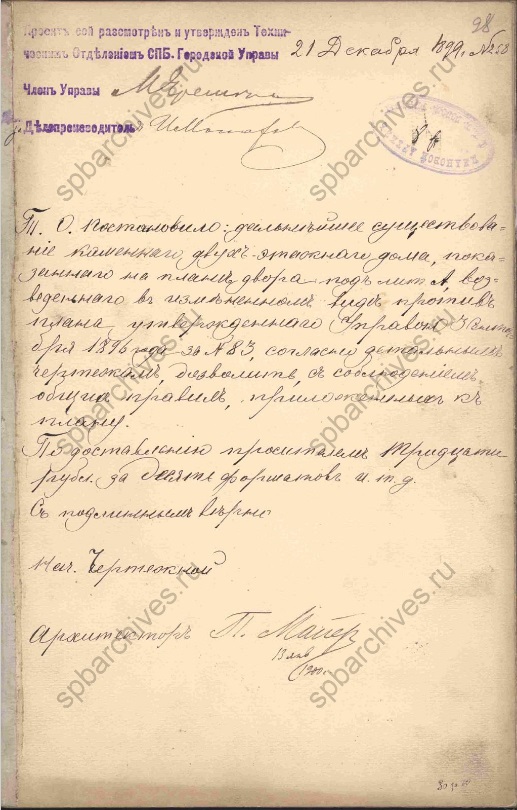 98
Проектъ сей разсмотрѣнъ и утвержденъ Техни-
ческимъ Отдѣленіемъ СПБ. Городской Управы 21 Декабря 1899, №
Членъ Управы
Дѣлопроизводитель
Т. О. постановило: дальнѣйшее существова-
ніе каменнаго двухъ-этажнаго дома, пока-
заннаго на планѣ двора подъ лит. А, воз-
веденнаго въ измѣненномъ видѣ противъ
плана, утвержденнаго Управою 3 Сентя-
бря 1896 года за № 83, согласно детальнымъ
чертежамъ, дозволить, съ соблюденіемъ
общихъ правилъ, приложенныхъ къ
плану.
По доставленію просителемъ тридцати
рубл. за десять форматовъ и т. д.
Съ подлиннымъ вѣрно
Нач. Чертежной
Архитекторъ П. Майеръ
13 янв
1900 г.
spbarchives.ru
spbarchives.ru
spbarchives.ru
spbarchives.ru
spbarchives.ru
spbarchives.ru